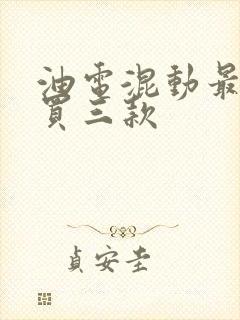 油電混動最
買三款
貞安圭